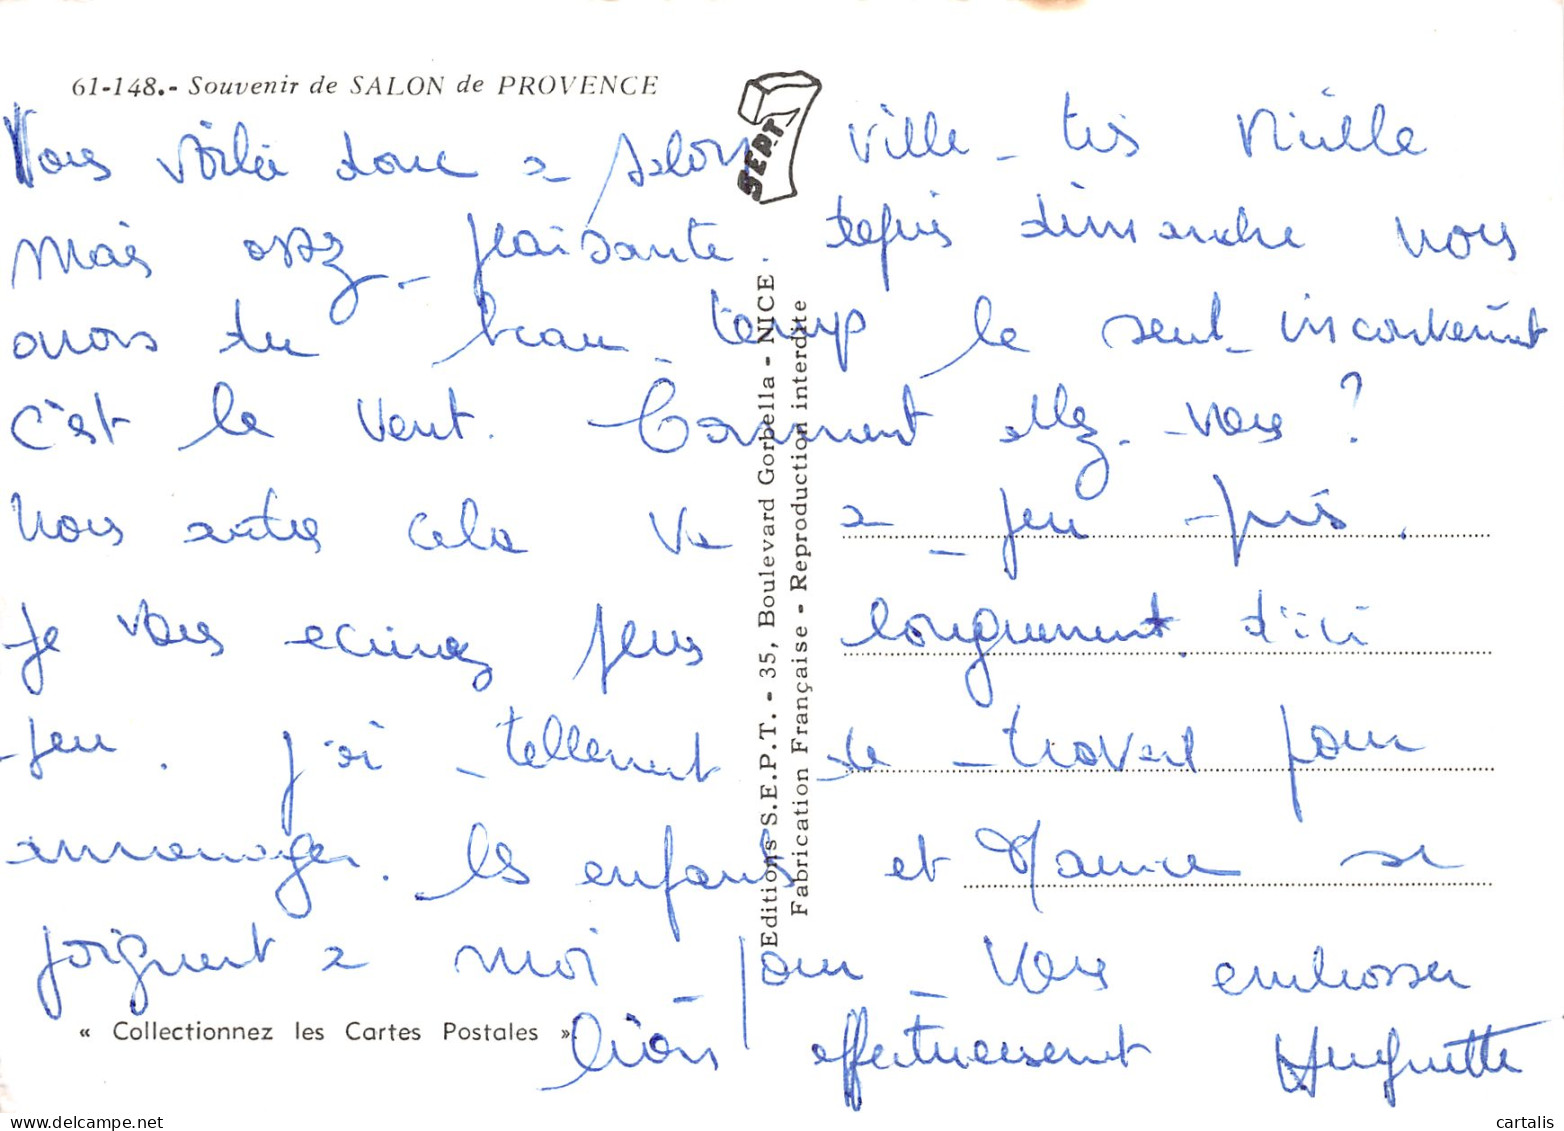 61-148.- Souvenir de SALON de PROVENCE
SEPT 7
Nous voilà donc a Salon ville très vieille
Mais assez plaisante. depuis dimanche nous
avons du beau temps le seul inconvenient
c'est le vent. Comment allez-vous ?
Nous autres cela va a peu près.
je vous ecrirez plus longuement d'ici
peu. j'ai tellement de travail pour
amenager. les enfants et Maurice se
joignent a moi pour vous embrasser
bien affectueusement Huguette
« Collectionnez les Cartes Postales »
Editions S.E.P.T. - 35, Boulevard Gorbella - NICE
Fabrication Française - Reproduction interdite
www.cartalis.com